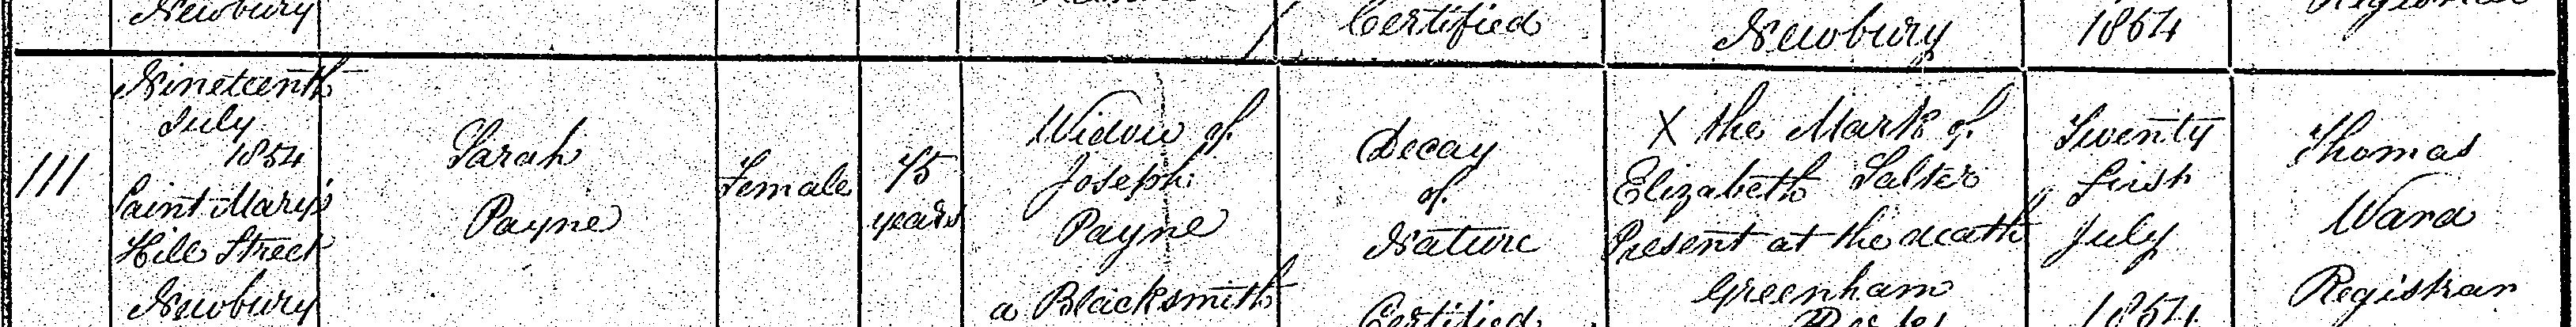 Newbury
Certified
Newbury
1854
Registrar
111
Nineteenth
July
1854
Saint Mary's
Hill Street
Newbury
Sarah
Payne
Female
75
years
Widow of
Joseph
Payne
a Blacksmith
Decay
of
Nature
Certified
X the Mark of
Elizabeth Salter
Present at the death
Greenham
Twenty
first
July
1854
Thomas
Ward
Registrar